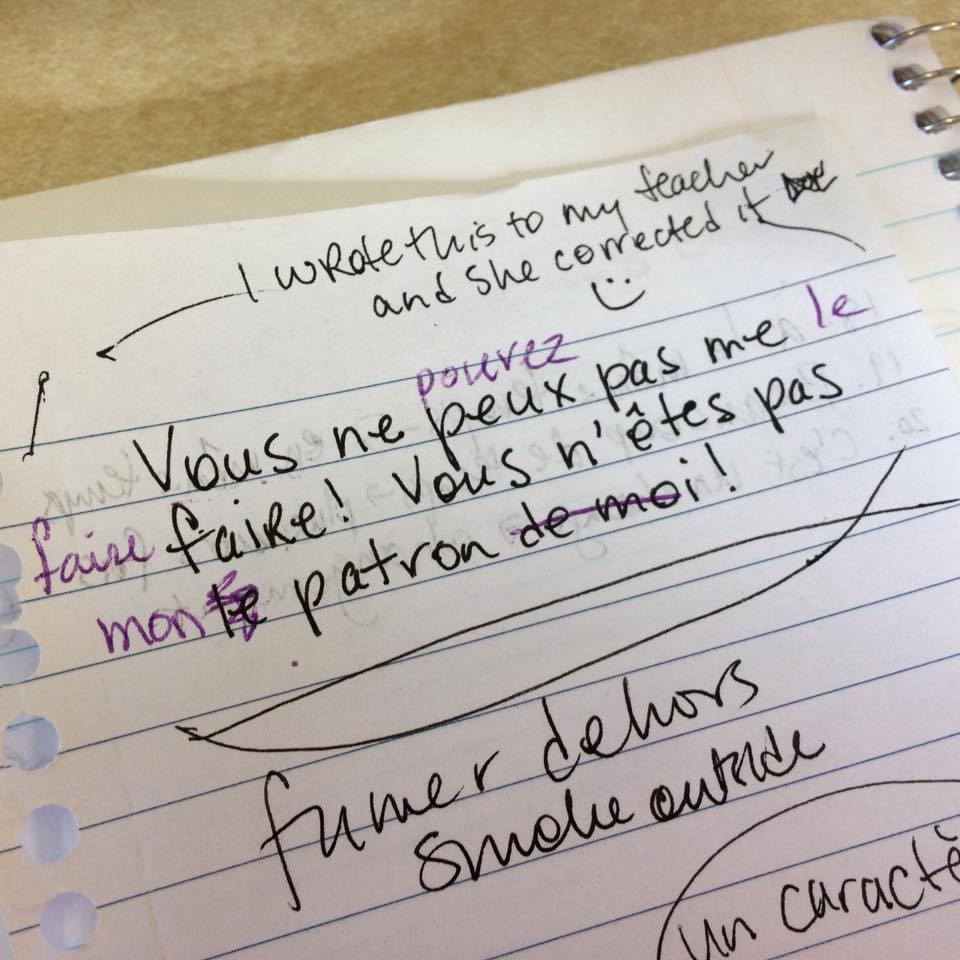 I wrote this to my teacher
and she corrected it
pouvez
Vous ne peux pas me le
faire faire! Vous n'êtes pas
mon le patron de moi!
fumer dehors
smoke outside
un caractè